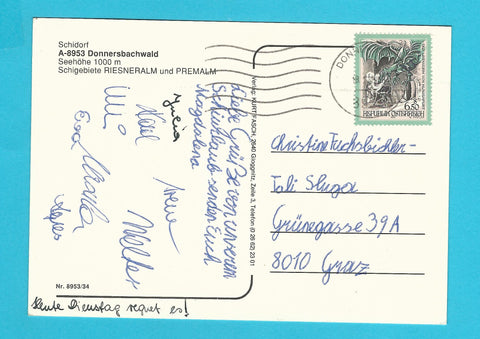 Schidorf
A-8953 Donnersbachwald
Seehöhe 1000 m
Schigebiete RIESNERALM und PREMALM
Liebe Grüße von unserem
Schiurlaub senden Euch
Magdalena
Karl
Irene
Eva
Heute Dienstag regnet es!
Nr. 8953/34
Verlag: KURT FASCH, 2640 Gloggnitz, Zeile 3, Telefon (0 26 62) 23 01
DONNE
6.50
REPUBLIK ÖSTERREICH
Christine Fuchsbichler-
Tali Sluga
Grünegasse 39A
8010 Graz